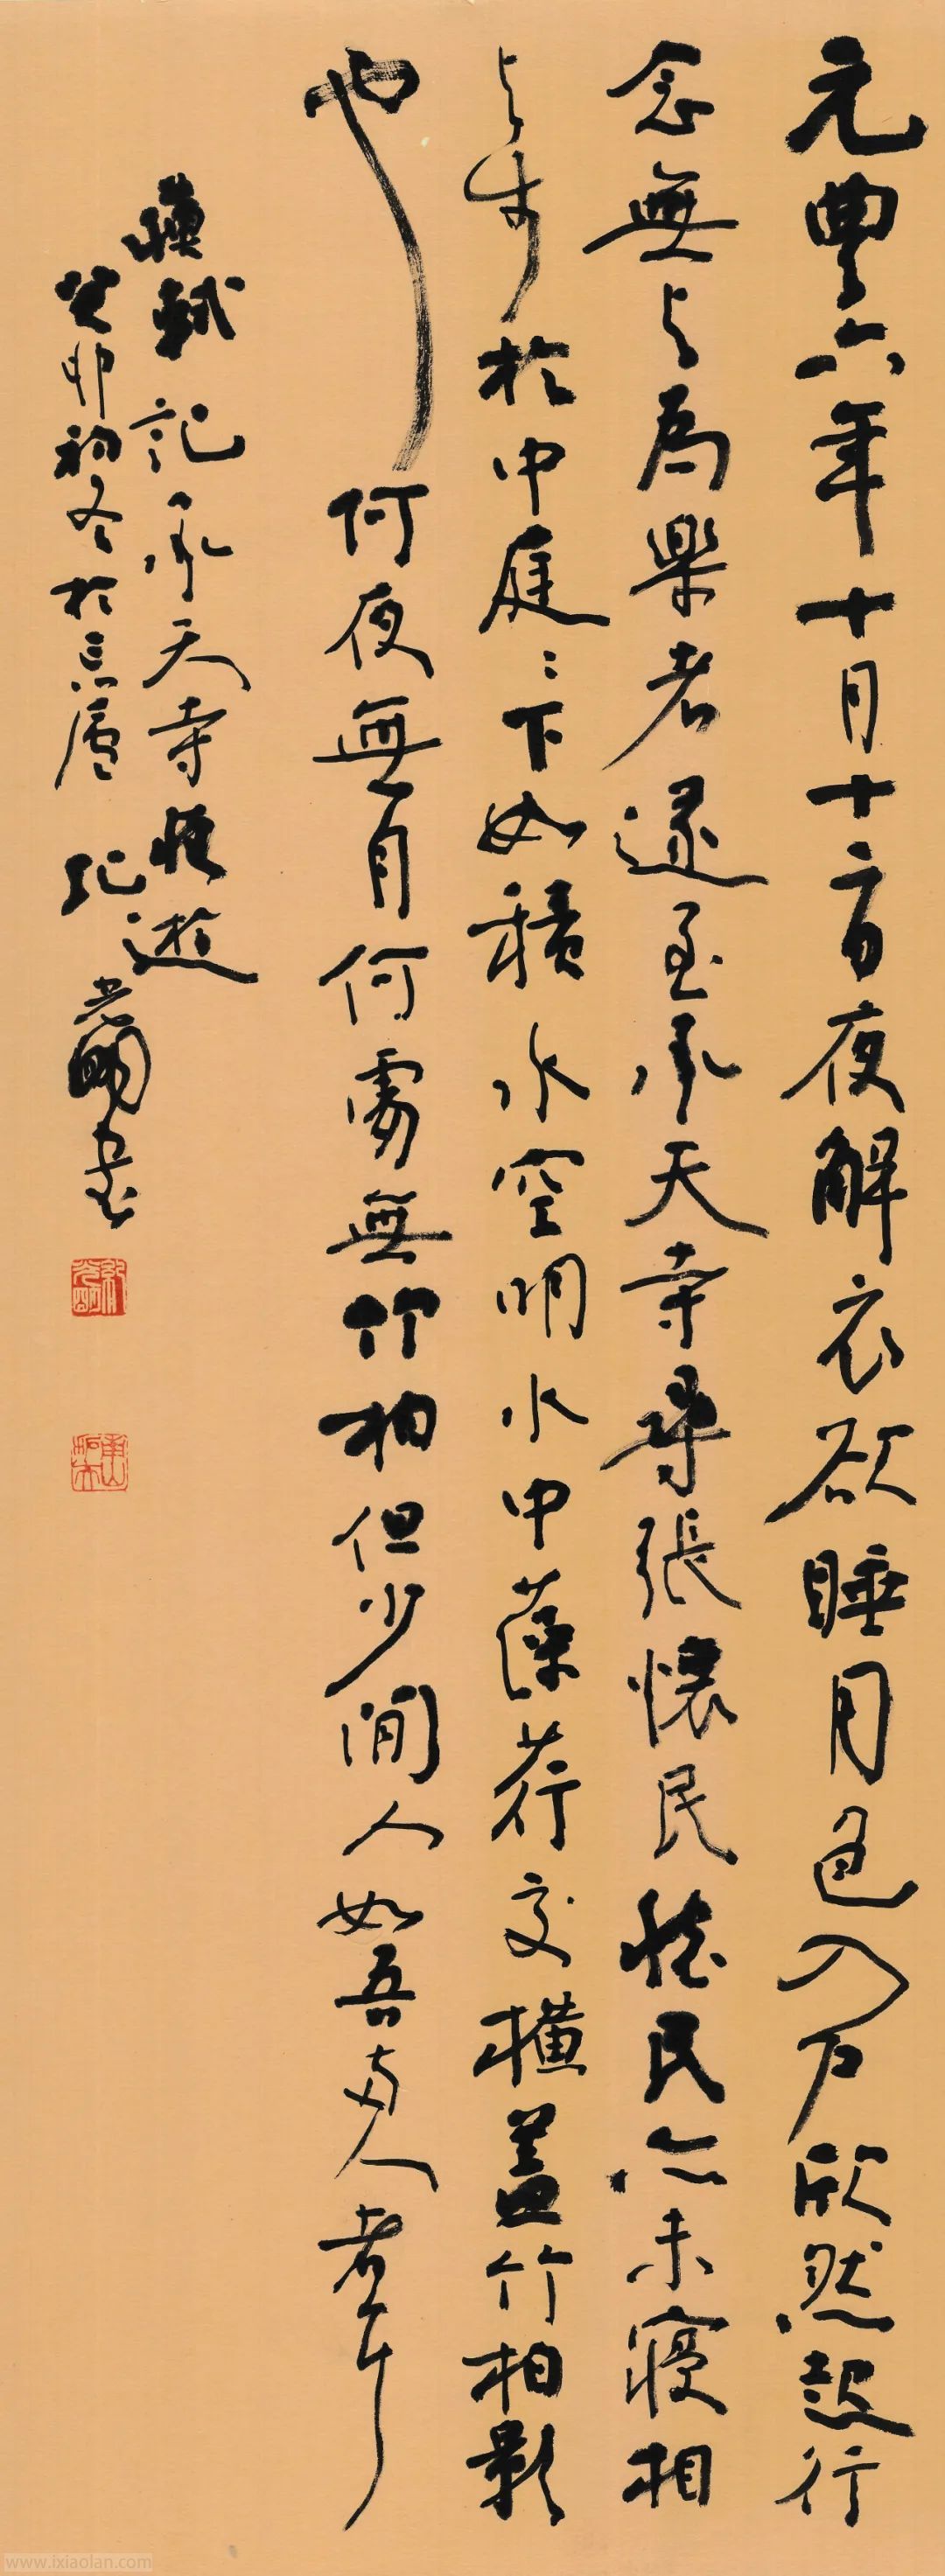 元豐六年十月十二日夜解衣欲睡月色入戶欣然起行
念無与為樂者遂至承天寺尋張懷民懷民亦未寢相
与步於中庭〻下如積水空明水中藻荇交橫蓋竹柏影
也何夜無月何處無竹柏但少閒人如吾兩人者耳
蘇軾記承天寺夜遊
癸卯初冬於廬 紀光明書
www.ixiaolan.com